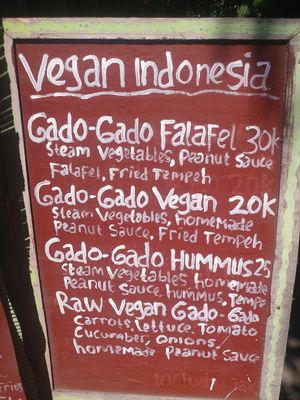 Vegan Indonesia
Gado-Gado Falafel 30k
Steam Vegetables, Peanut Sauce
Falafel, Fried Tempeh
Gado-Gado Vegan 20K
Steam Vegetables, Homemade
Peanut Sauce, Fried Tempeh
Gado-Gado Hummus 25
Steam Vegetables, homemade
Peanut Sauce, hummus, Tempe
Raw Vegan Gado-Gado
Carrots, lettuce, Tomato
Cucumber, Onions,
homemade Peanut Sauce